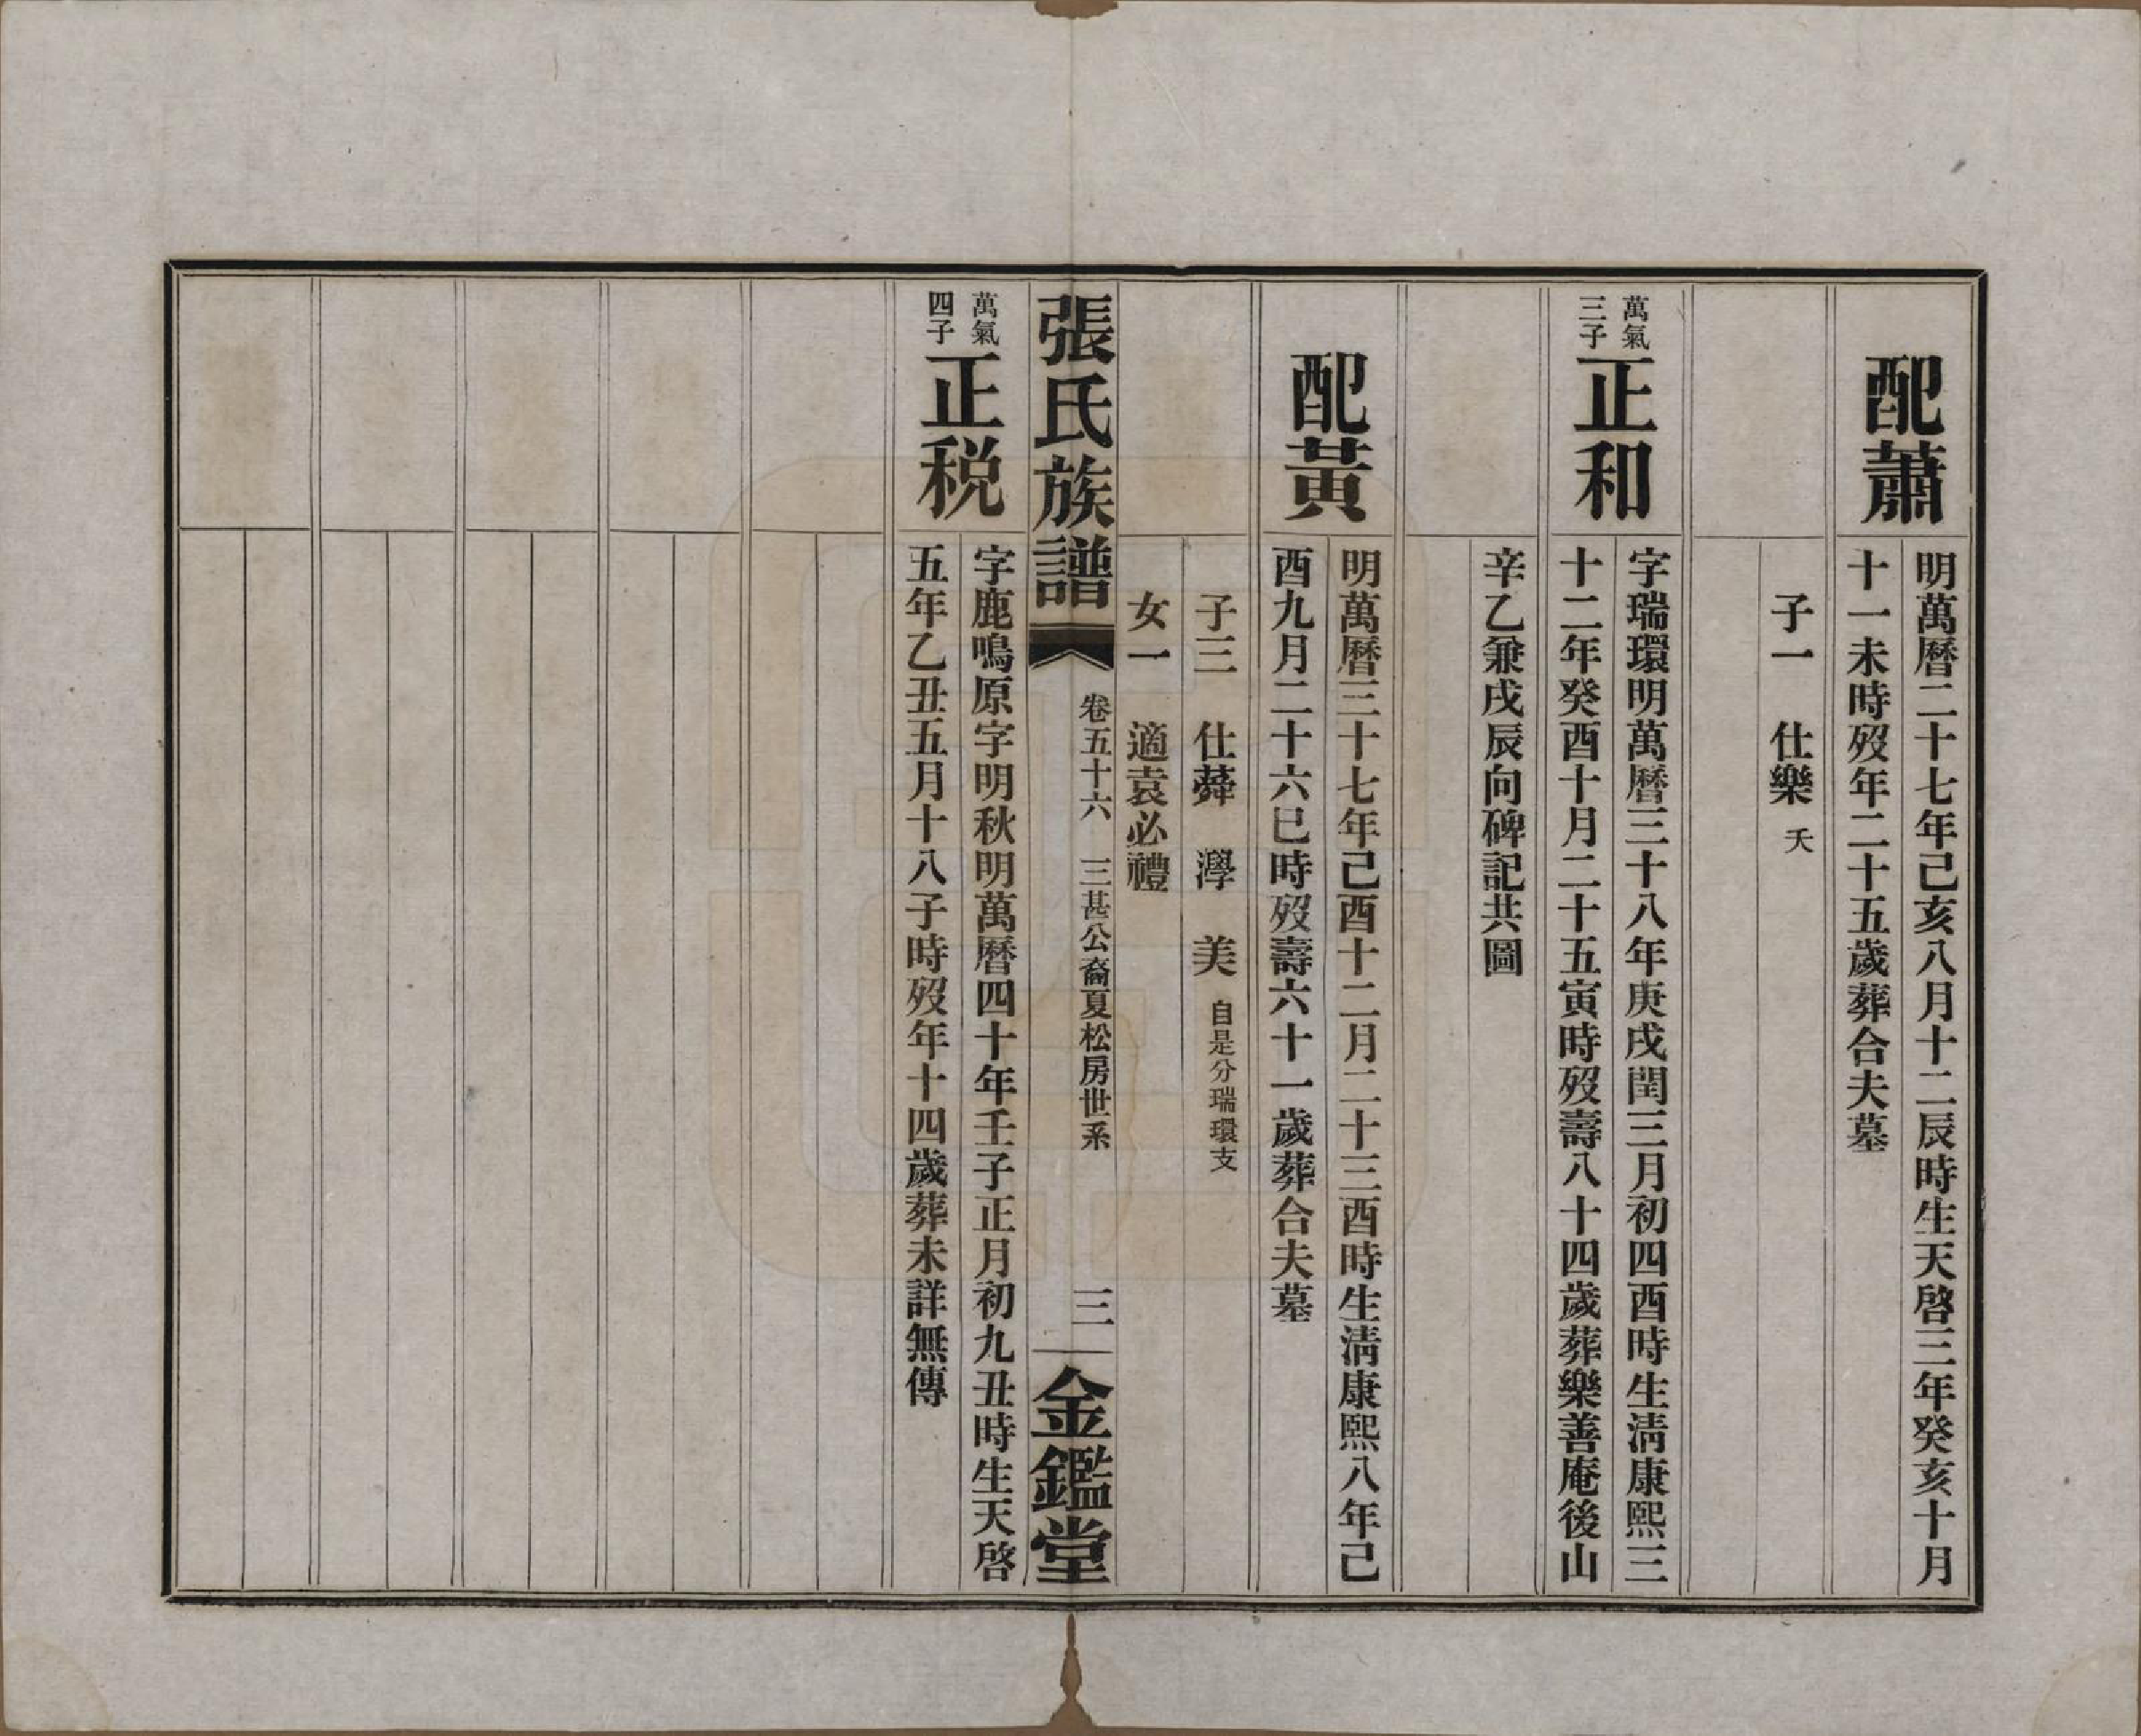 配蕭
明萬曆二十七年己亥八月十二辰時生天啓三年癸亥十月
十一未時歿年二十五歲葬合夫墓
子一 仕樂 夭
萬氣
三子
正和
字瑞環明萬曆三十八年庚戌閏三月初四酉時生清康熙三
十二年癸酉十月二十五寅時歿壽八十四歲葬樂善庵後山
辛乙兼戌辰向碑記共圖
配黃
明萬曆三十七年己酉十二月二十三酉時生清康熙八年己
酉九月二十六巳時歿壽六十一歲葬合夫墓
子三 仕蕣 澩 美 自是分瑞環支
女一 適袁必禮
張氏族譜
卷五十六 三甚公裔夏松房世系
三
金鑑堂
萬氣
四子
正税
字鹿鳴原字明秋明萬曆四十年壬子正月初九丑時生天啓
五年乙丑五月十八子時歿年十四歲葬未詳無傳